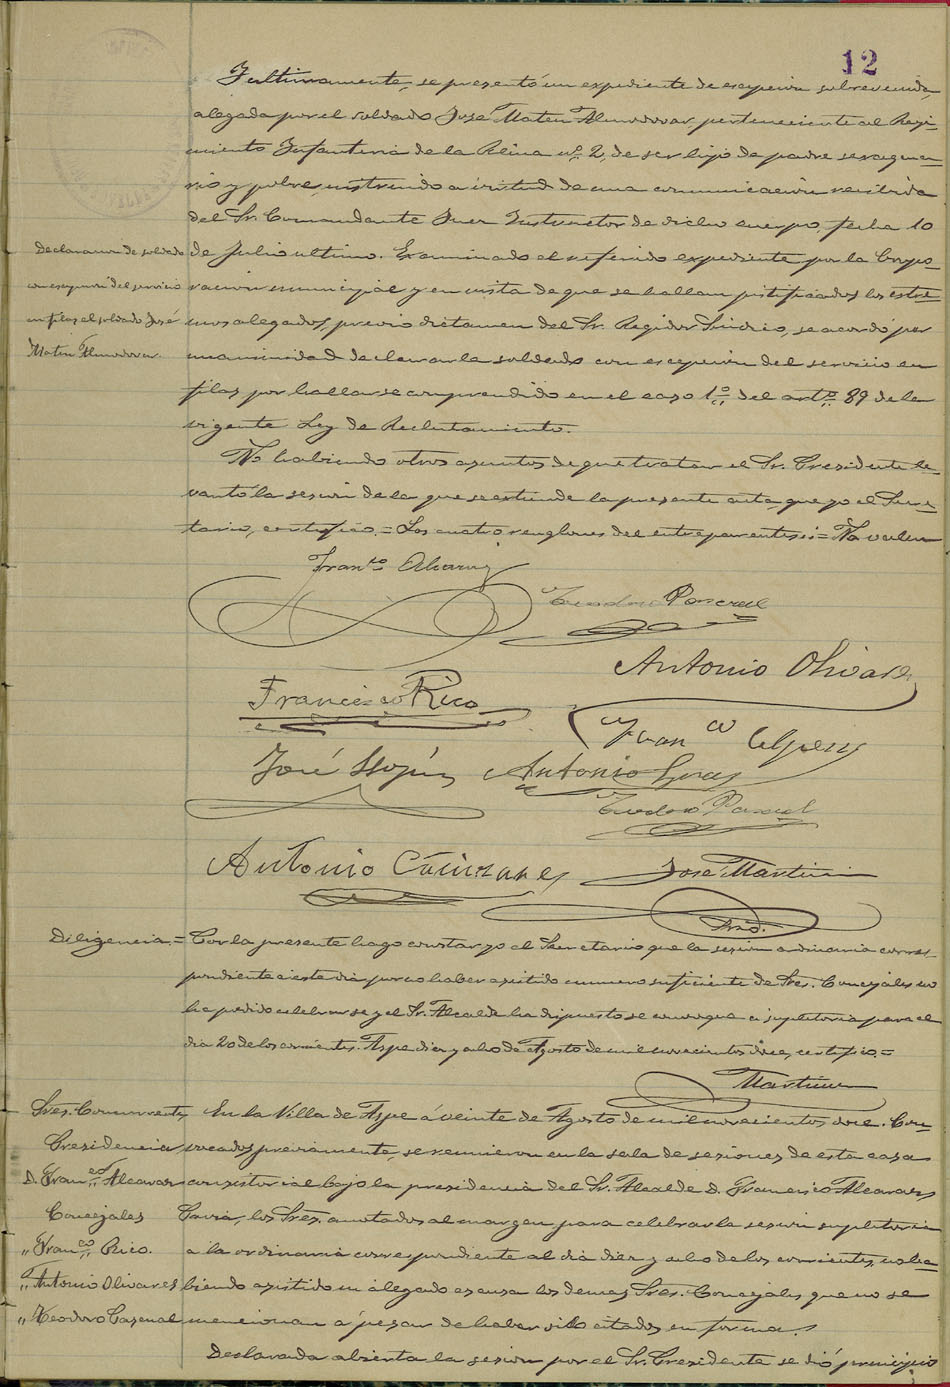 12
Y ultimamente, se presentó un expediente de escepcion sobrevenida,
alegada por el soldado José Mateu Almodovar perteneciente al Regi-
miento Infanteria de la Reina nº 2, de ser hijo de padre sexagena-
rio y pobre, instruido a virtud de una comunicación recibida
del Sr. Comandante Juez Instructor de dicho cuerpo, fecha 10
Declaracion de soldado
con escepcion del servicio
en filas, el soldado José
Mateu Almodovar.
de Julio ultimo. Examinado el referido expediente por la Corpo-
racion municipal y en vista de que se hallan justificados los estre-
mos alegados, previo dictamen del Sr. Regidor Sindico, se acordó por
unanimidad declararle soldado con escepcion del servicio en
filas por hallarse comprendido en el caso 1º del artº 89 de la
vigente Ley de Reclutamiento.
No habiendo otros asuntos de que tratar el Sr. Presidente le-
vantó la sesion de la que se estiende la presente acta, que yo el Secre-
tario, certifico.= Los cuatro renglones del entreparentesis = No valen
Franco Alcaraz
Teodoro Pascual
Antonio Olivares
Francisco Rico
Franco
José Antonio
Teodoro Pascual
Antonio Cañizares José Martinez
Srio.
Diligencia.= Por la presente hago constar yo el Secretario que la sesion ordinaria corres-
pondiente a este dia por no haber asistido numero suficiente de Sres. Concejales no
ha podido celebrarse y el Sr. Alcalde ha dispuesto se convoque a supletoria para el
dia 20 de los corrientes. Aspe diez y ocho de Agosto de mil novecientos doce, certifico.=
Martinez
Sres. Concurrentes
Presidencia
D. Franco Alcaraz
Concejales
" Franco Rico.
" Antonio Olivares
" Teodoro Pascual
En la Villa de Aspe á veinte de Agosto de mil novecientos doce. Con-
vocados previamente, se reunieron en la sala de sesiones de esta casa
consistorial bajo la presidencia del Sr. Alcalde D. Francisco Alcaraz
los Sres. anotados al margen para celebrar la sesion supletoria
a la ordinaria correspondiente al dia diez y ocho de los corrientes, no ha-
biendo asistido ni alegado escusa los demas Sres. Concejales que no se
mencionan á pesar de haber sido citados en forma.
Declarada abierta la sesion por el Sr. Presidente se dió principio